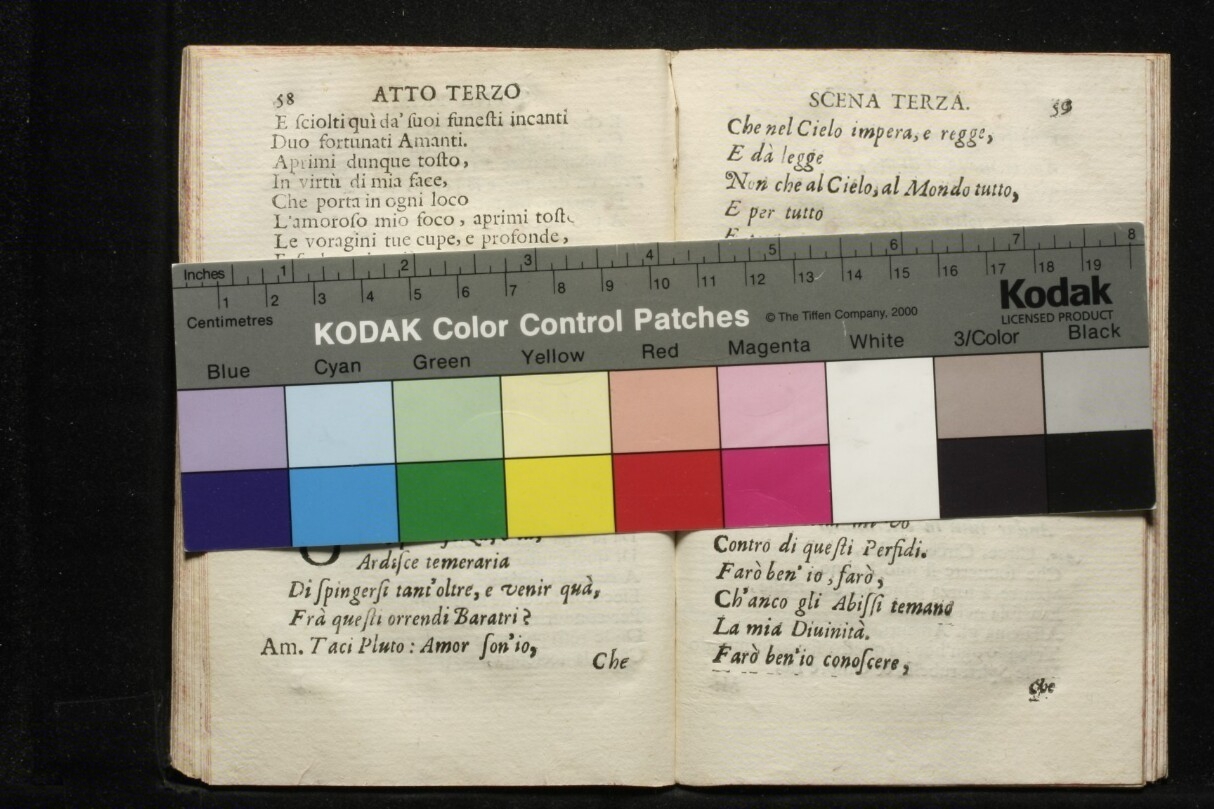 58 ATTO TERZO
E ſciolti quì da' ſuoi funeſti incanti
Duo fortunati Amanti.
Aprimi dunque toſto,
In virtù di mia face,
Che porta in ogni loco
L'amoroſo mio foco, aprimi
Le voragini tue cupe, e profonde,
Ardiſce temeraria
Di ſpingerſi tant'oltre, e venir quà,
Frà queſti orrendi Baratri?
Am. Taci Pluto: Amor ſon'io,
Che
SCENA TERZA. 59
Che nel Cielo impera, e regge,
E dà legge
Non che al Cielo, al Mondo tutto,
E per tutto
Contro di queſti Perfidi.
Farò ben' io, farò,
Ch'anco gli Abiſſi temano
La mia Diuinità.
Farò ben'io conoſcere,
Che
Inches 1 2 3 4 5 6 7 8
1 2 3 4 5 6 7 8 9 10 11 12 13 14 15 16 17 18 19
Centimetres
KODAK Color Control Patches © The Tiffen Company, 2000
Kodak
LICENSED PRODUCT
Blue Cyan Green Yellow Red Magenta White 3/Color Black